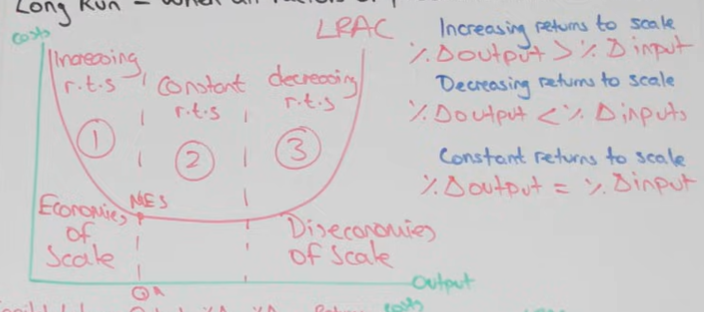 Long Run = When all factors of
costs
LRAC
Increasing
r.t.s
Constant
r.t.s
decreasing
r.t.s
①
②
③
MES
Economies
of
Scale
Diseconomies
of Scale
Output
costs
Increasing returns to scale
% Δ output > % Δ input
Decreasing returns to scale
% Δ output < % Δ inputs
Constant returns to scale
% Δ output = % Δ input